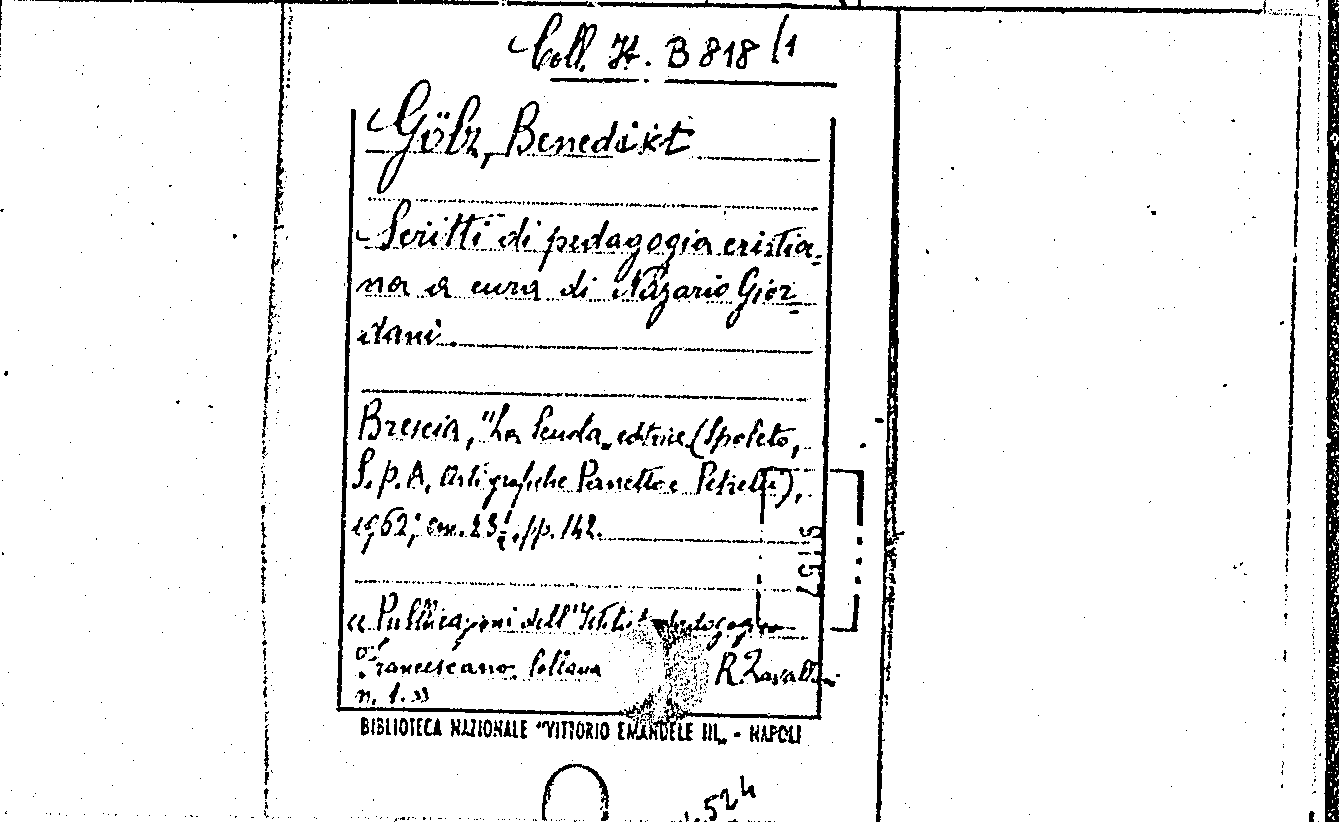 Coll. It. B 818/1
Gölz, Benedikt
Scritti di pedagogia cristia=
na a cura di Nazario Gior=
dani.
Brescia, "La Scuola" editrice (Spoleto,
S.p.A. Arti grafiche Panetto e Petrelli),
1962, cm. 23½, pp. 142.
« Pubblicazioni dell'Istituto pedagogico
Francescano. Collana
n. 1. »
BIBLIOTECA NAZIONALE "VITTORIO EMANUELE III" - NAPOLI
524